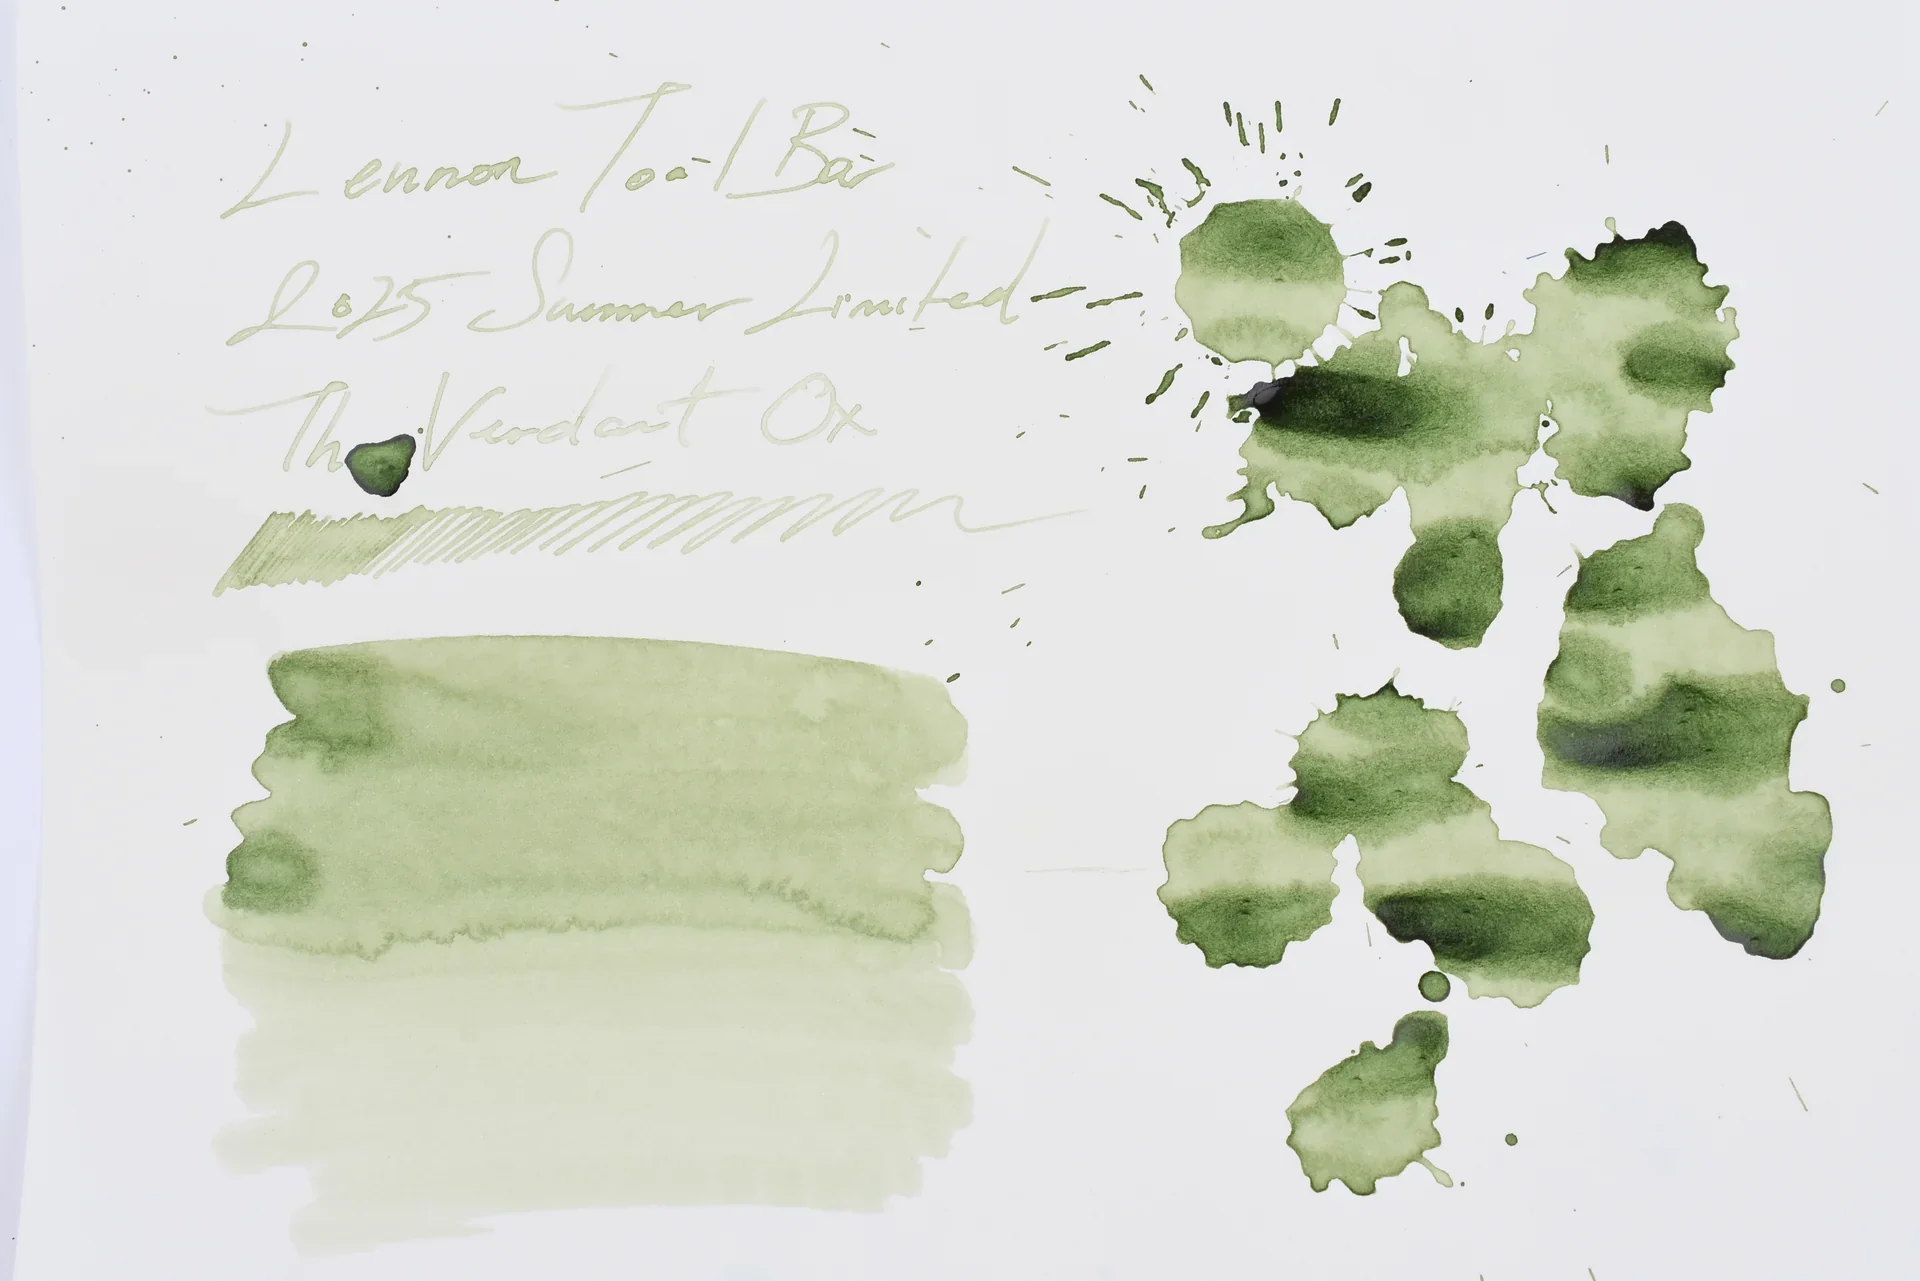 Lennon Tool Bar
2025 Summer Limited
The Verdant Ox